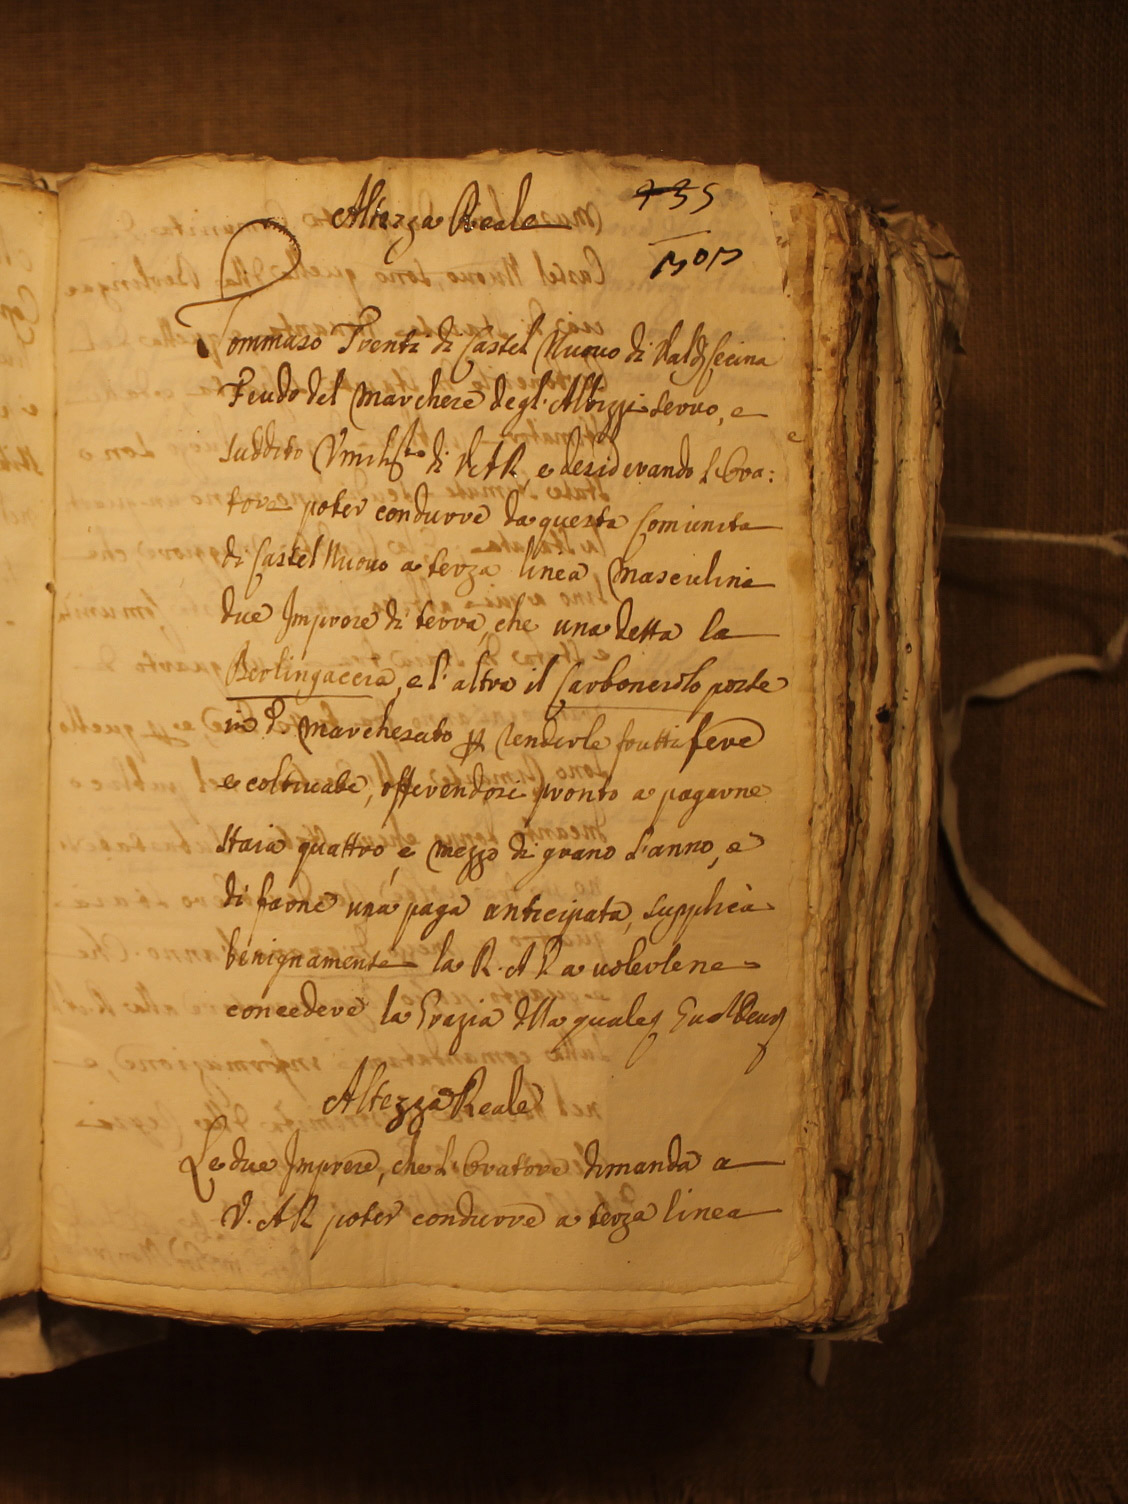 Altezza Reale
435
303
Tommaso Trenti di Castel Nuovo di Val di Cecina
Feudo del Marchese degl'Albizzi servo, e
suddito Umiliss.mo di V.A.R. e desiderando l'Ora:
tore poter condurre da questa Comunità
di Castel Nuovo a terza linea Masculina
due Imprese di terra, che una detta la
Berlingaccia, e l'altra il Carbonesolo poste
in d.o Marchesato per renderle fruttifere
e coltivate, offerendosi pronto a pagarne
staia quattro, e mezzo di grano l'anno, e
di farne una paga anticipata, supplica
benignamente la R.A.V. a volerlene
concedere la Grazia della quale
Altezza Reale
Le due Imprese, che l'Oratore dimanda a
V.A.R. poter condurre a terza linea